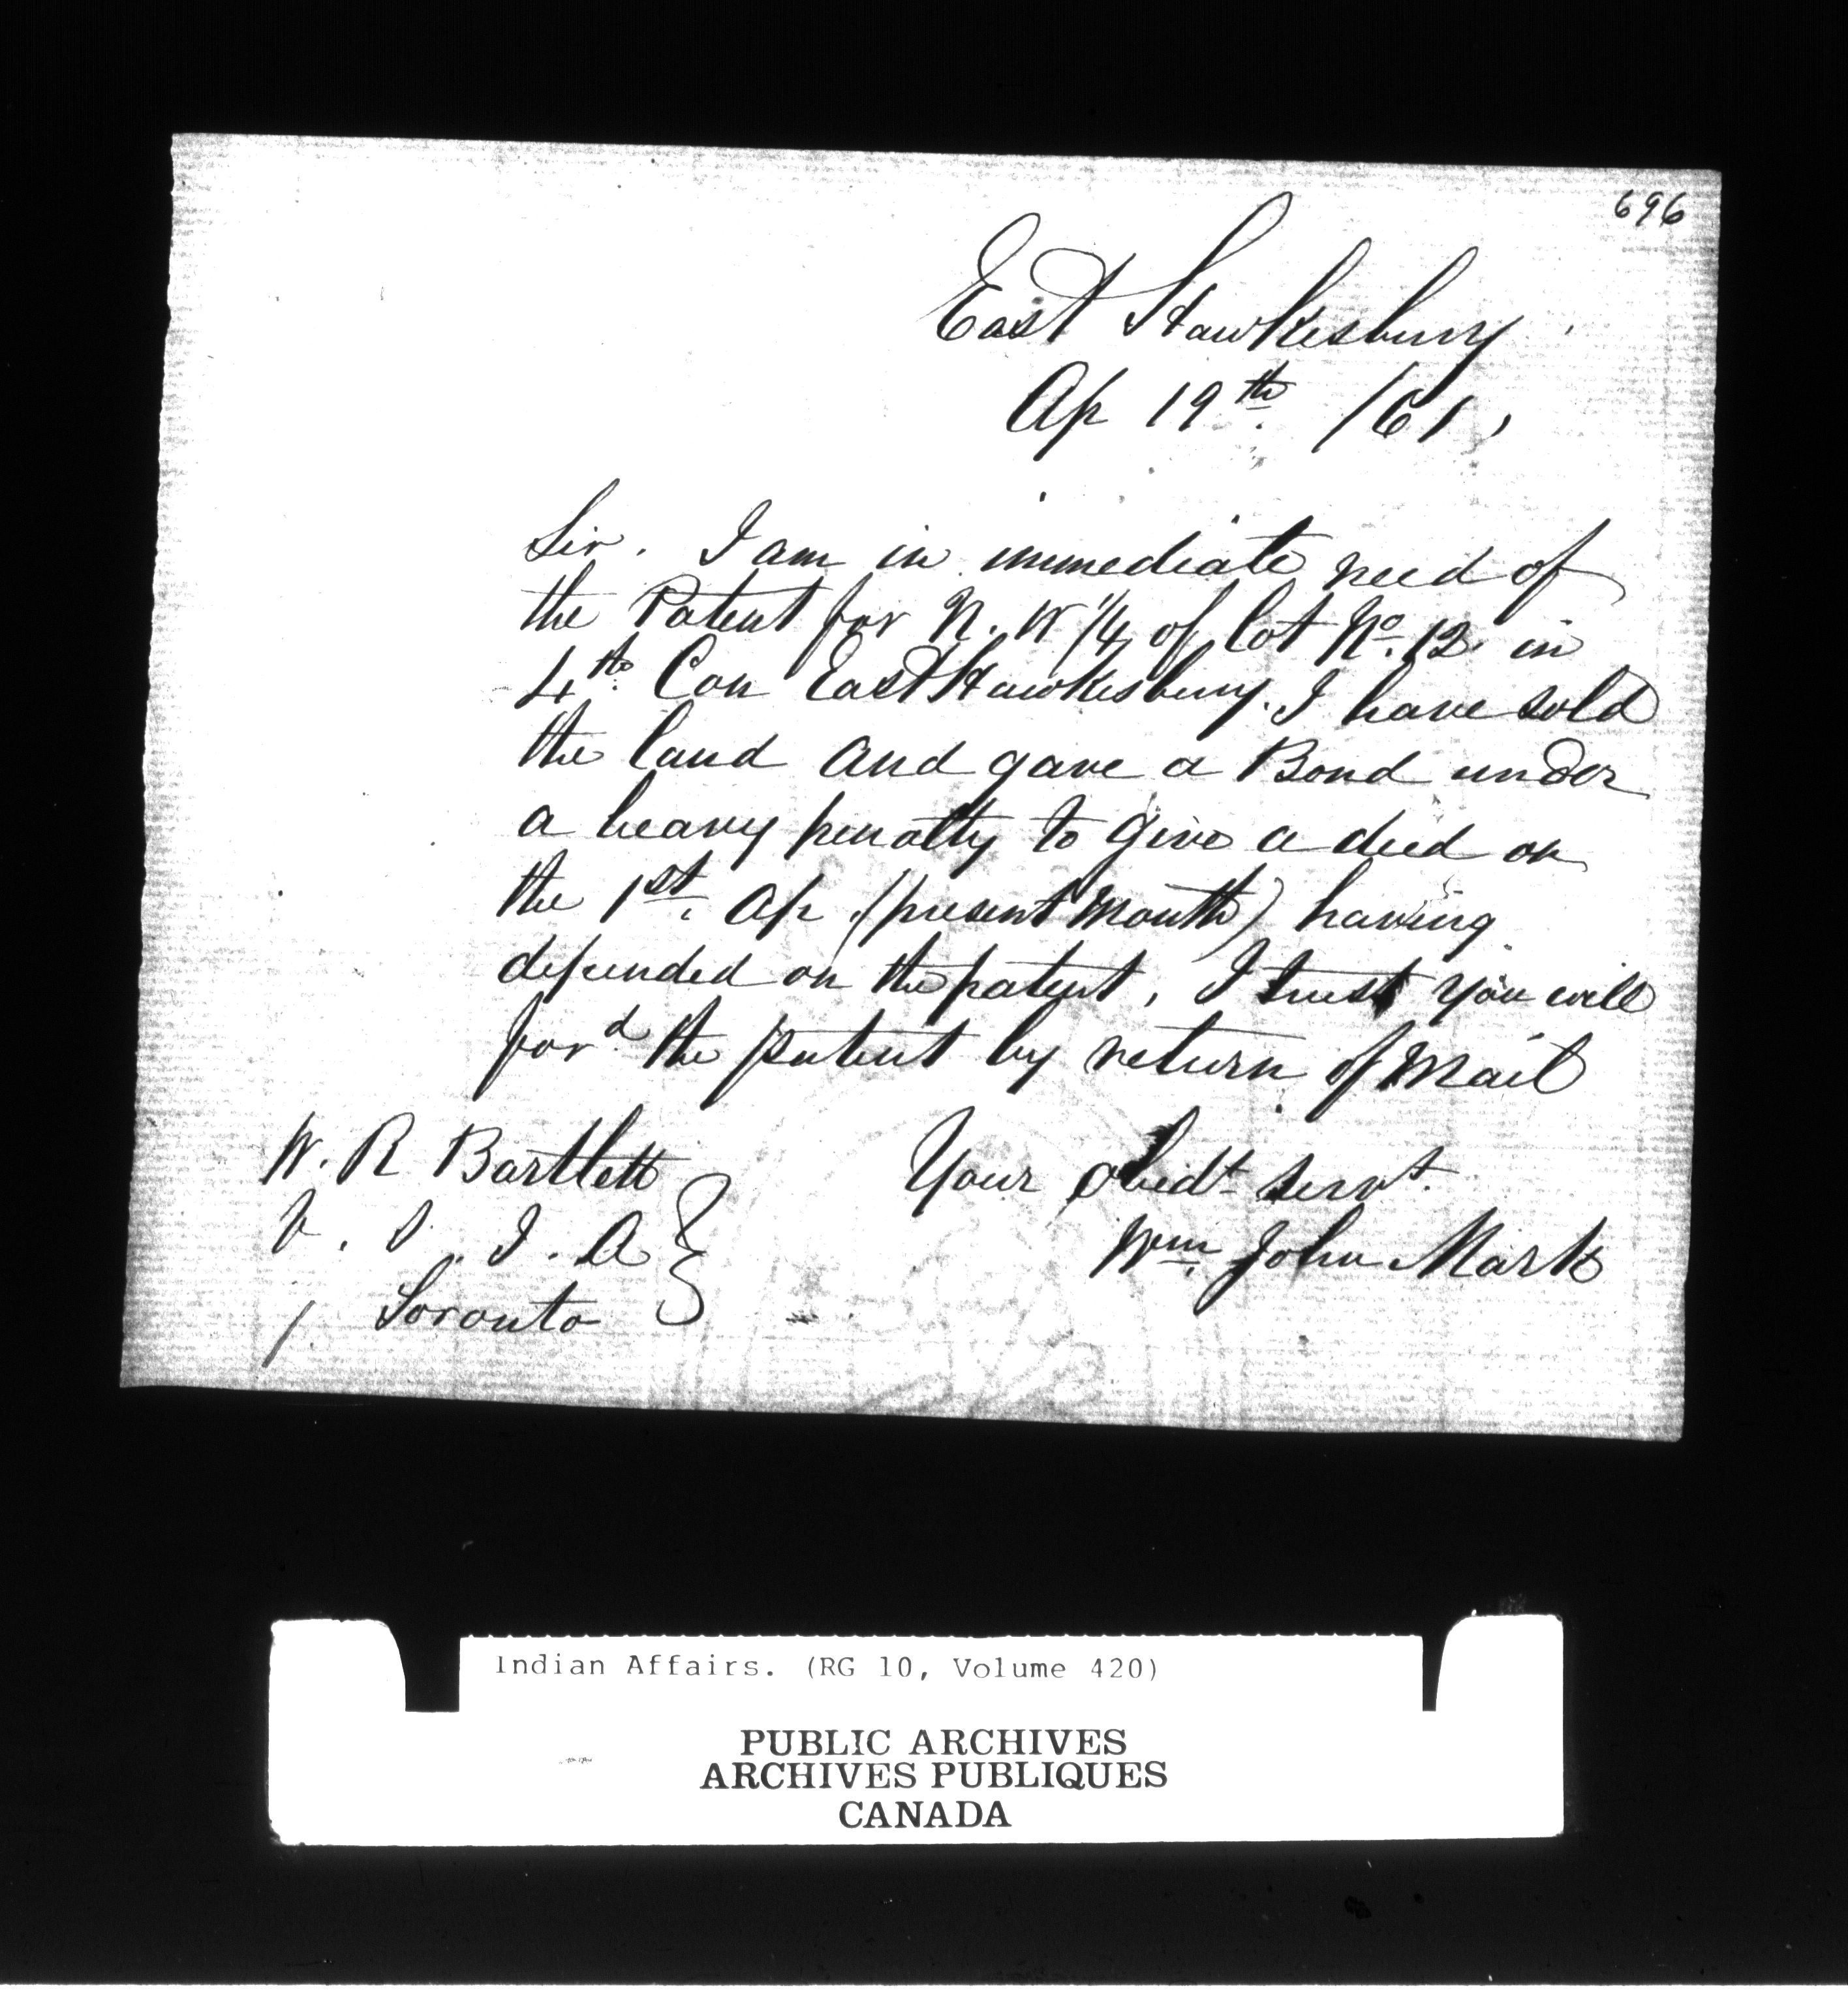 696
East Hawkesbury
Ap 19th /61,
Sir. I am in immediate need of
the Patent for N. W 1/4 of lot No. 12. in
4th Con East Hawkesbury. I have sold
the land and gave a Bond under
a heavy penalty to give a deed on
the 1st. Ap. (present month) having
depended on the patent, I trust you will
ford the patent by return of Mail
Your obedt servt.
Wm. John Mark
W. R Bartlett
V. S. I. A
Toronto
Indian Affairs. (RG 10, Volume 420)
PUBLIC ARCHIVES
ARCHIVES PUBLIQUES
CANADA